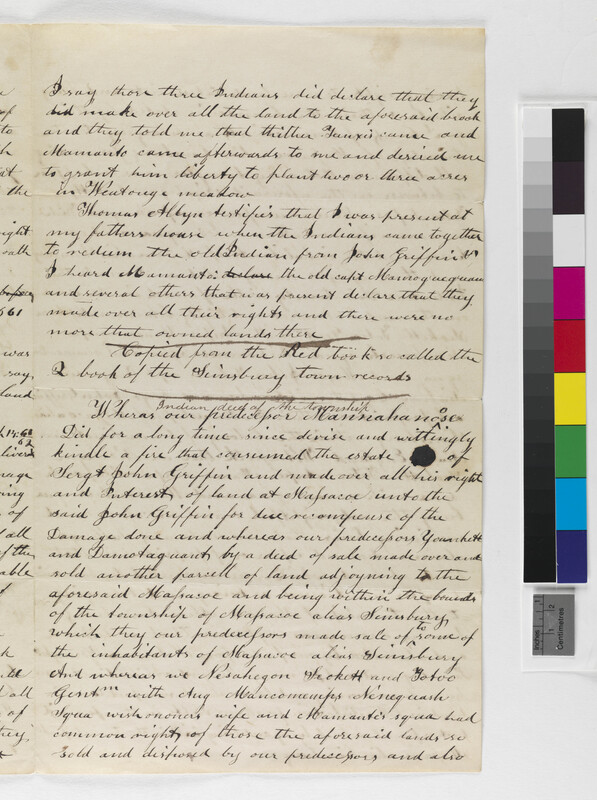 I say those three Indians did declare that they
did make over all the land to the aforesaid brook
and they told me that thither Tauxis came and
Mamanto came afterwards to me and desired me
to grant him liberty to plant two or three acres
in Weatouge meadow
Thomas Allyn testifies that I was present at
my fathers house when the Indians came together
to redeem the old Indian from John Griffin &
I heard Mamanto: declare the old capt Mamoquequam
and several others that was present declare that they
made over all their rights and there were no
more that owned lands there
Copied from the Red book so called the
2 book of the Simsbury town records
Indian deed of the township
Wheras our predecessor Mannahanoose
Did for a long time since devise and wittingly
kindle a fire that consumed the estate of
Sergt John Griffin and made over all his right
and Interest of land at Massacoe unto the
said John Griffin for due recompense of the
Damage done and whereas our predecessors Younkett
and Damotaquant by a deed of sale made over and
sold another parcell of land adjoyning to the
aforesaid Massacoe and being within the bounds
of the township of Massacoe alias Simsbury
which they our predecessors made sale of to some of
the inhabitants of Massacoe alias Simsbury
And whereas we Nesahegon and
Gent<sup>m</sup> with Aug Mancomeness Nenequash
Squa wishonors wife and Mamantos squa had
common right of those the aforesaid lands so
sold and disposed by our predecessors and also